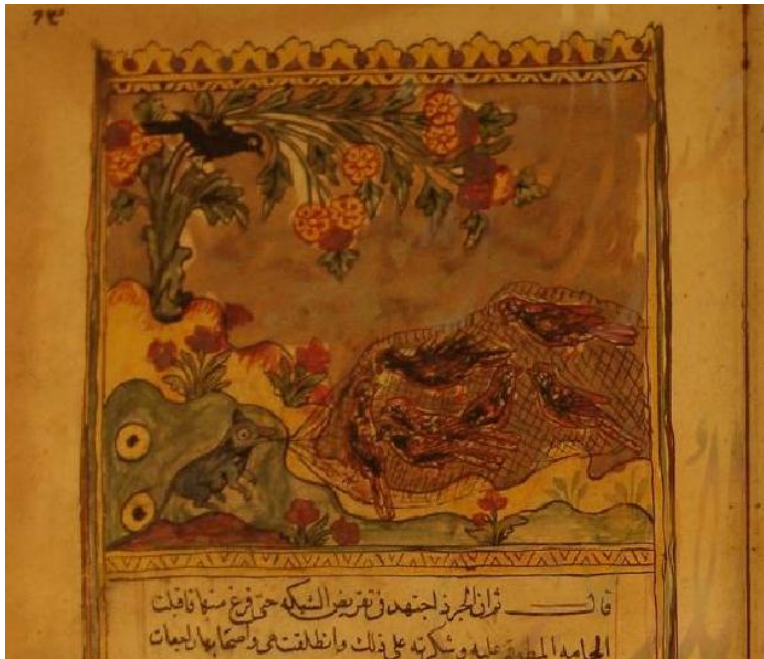 قال ثم ان الجرذ اجتهد في تقريض الشبكه حتى فرغ منها فاقبلت
الحمامه المطوقه عليه وشكرته على ذلك وانطلقت هي واصحابها راجعات